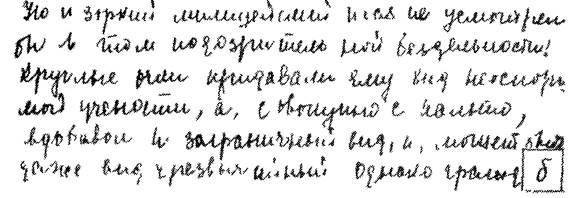 Но и зоркий милицейский глаз не усмотрел
бы в том подозрительной бездельности:
круглые очки придавали ему вид неоспори-
мой учености, а, совокупно с пальто,
вдобавок и заграничный вид, и, может быть
даже вид чрезвычайный однако
б